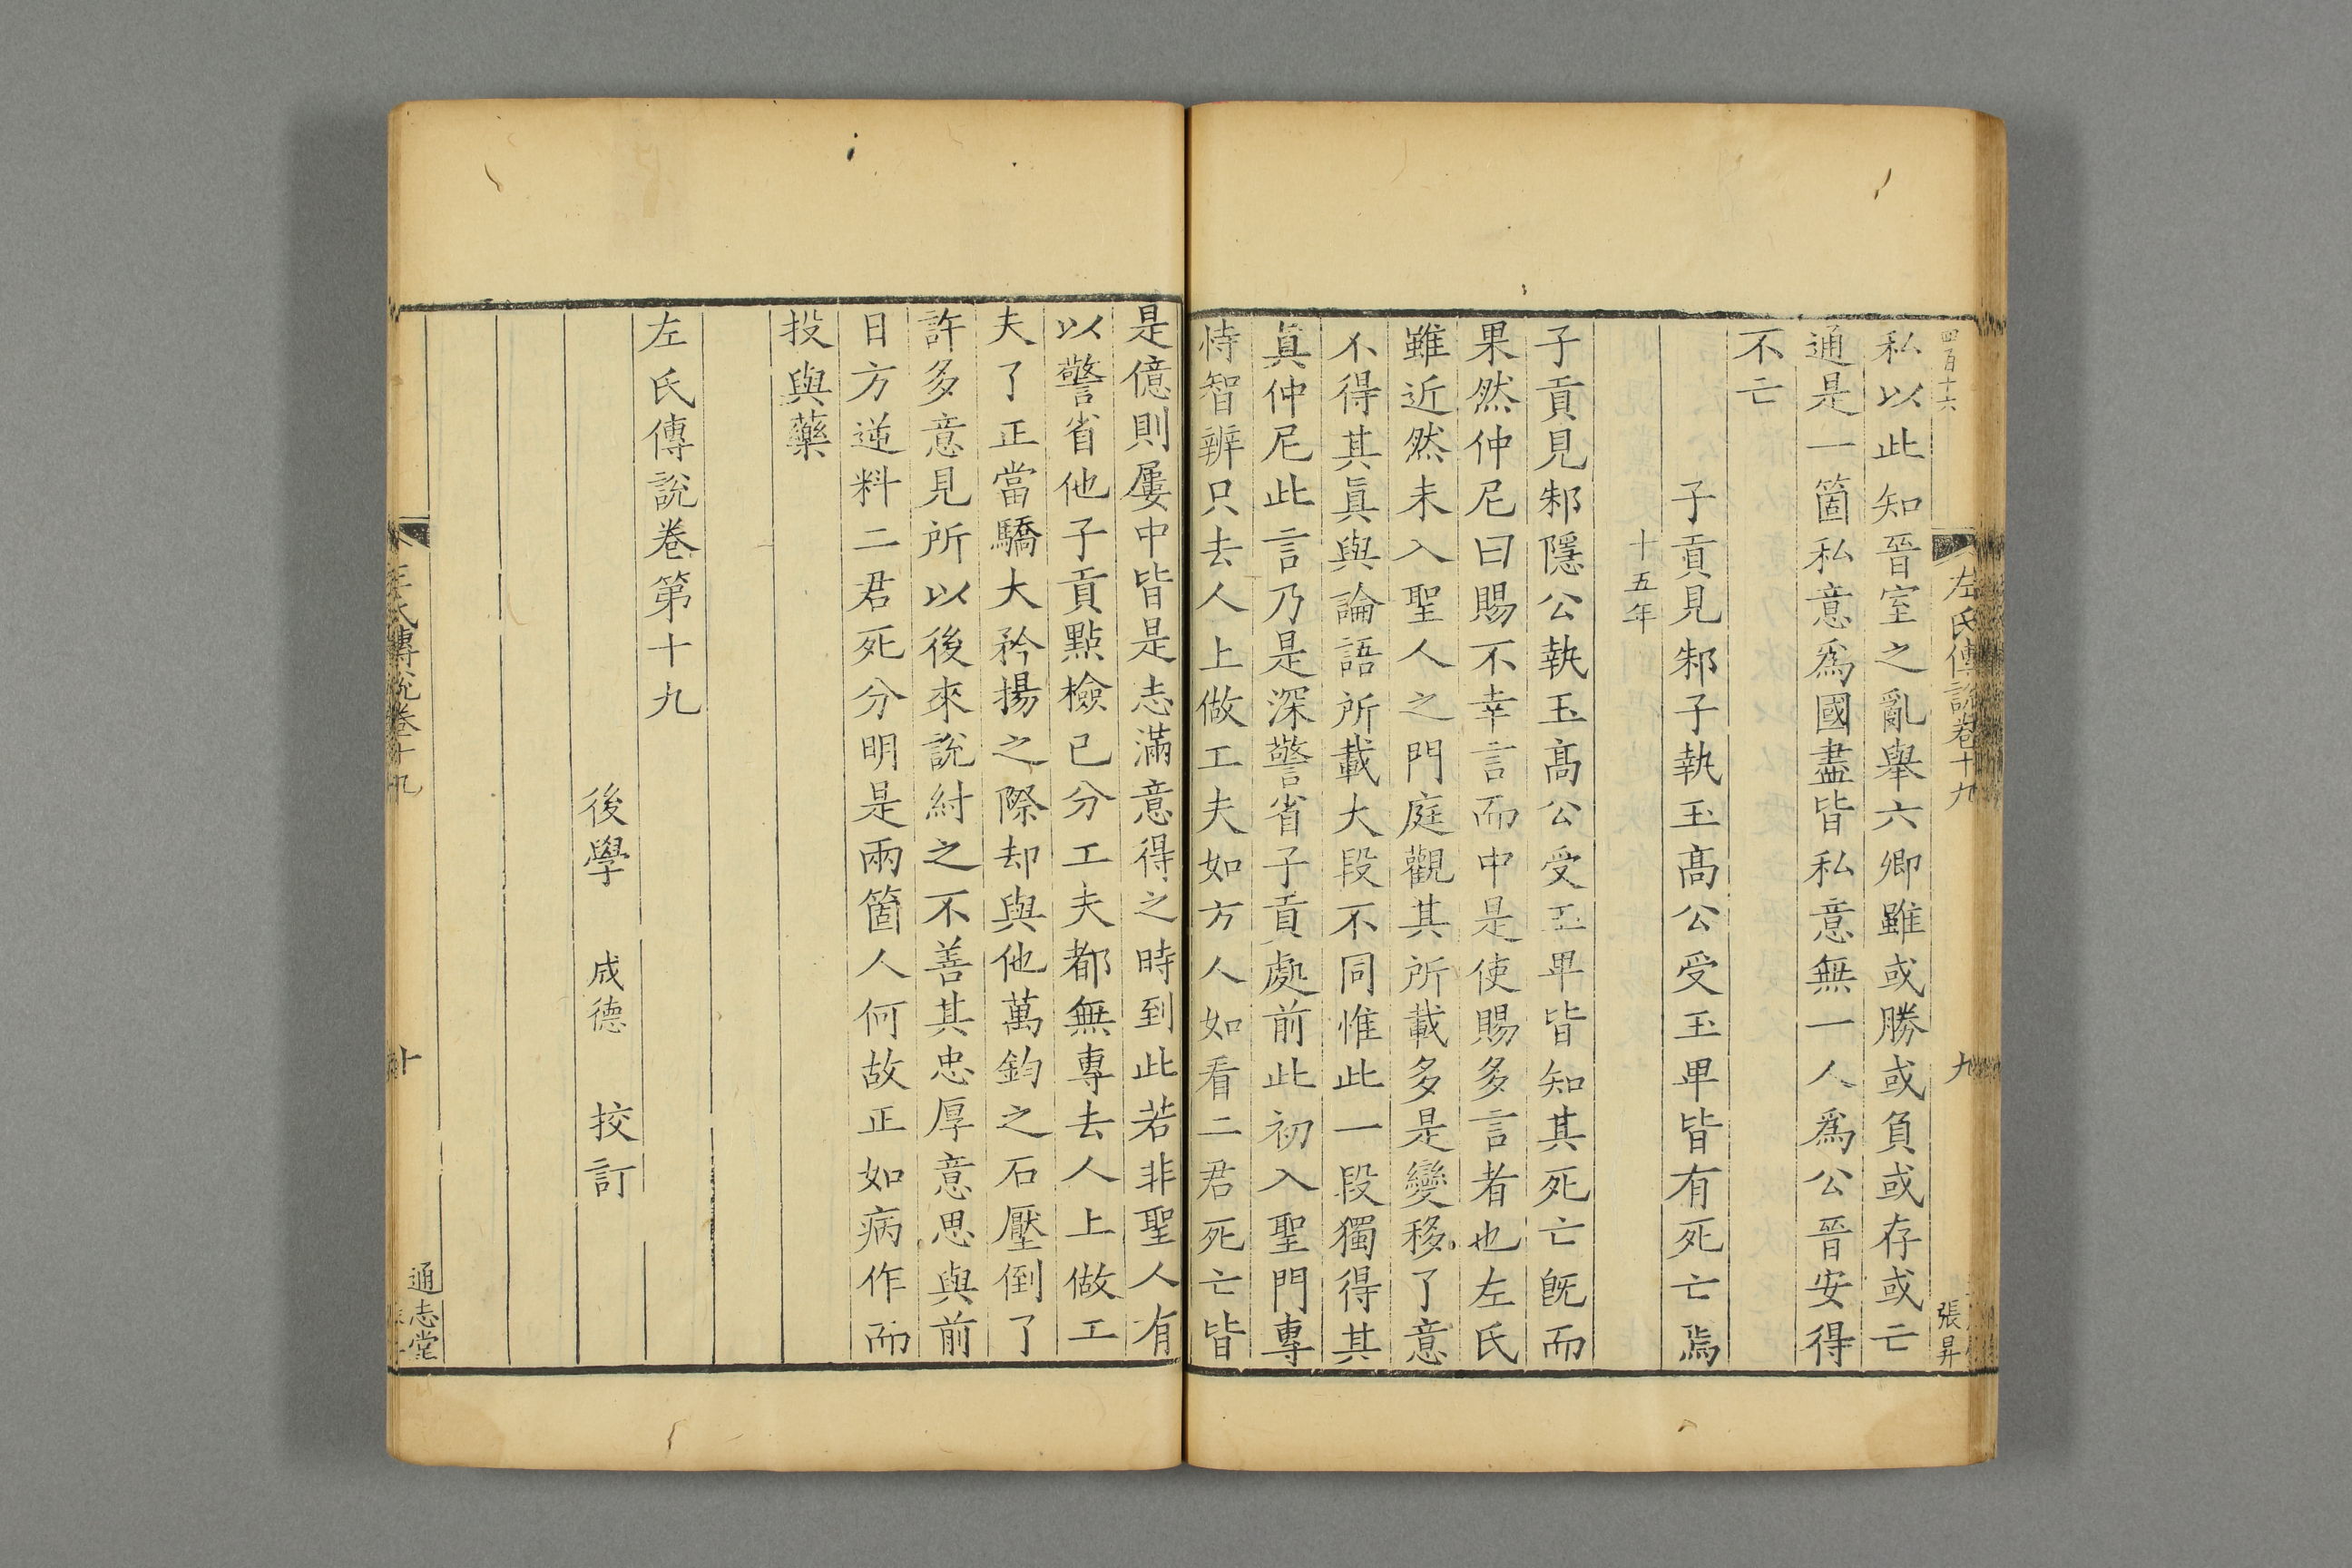 四百十六
左氏傳說卷十九
九
張昇
私以此知晉室之亂舉六卿雖或勝或負或存或亡
通是一箇私意爲國盡皆私意無一人爲公晉安得
不亡
子貢見邾子執玉髙公受玉卑皆有死亡焉
十五年
子貢見邾隱公執玉髙公受玉卑皆知其死亡旣而
果然仲尼曰賜不幸言而中是使賜多言者也左氏
雖近然未入聖人之門庭觀其所載多是變移了意
不得其眞與論語所載大段不同惟此一段獨得其
眞仲尼此言乃是深警省子貢處前此初入聖門專
恃智辨只去人上做工夫如方人如看二君死亡皆
是億則屢中皆是志滿意得之時到此若非聖人有
以警省他子貢點檢已分工夫都無專去人上做工
夫了正當驕大矜揚之際却與他萬鈞之石壓倒了
許多意見所以後來說紂之不善其忠厚意思與前
日方逆料二君死分明是兩箇人何故正如病作而
投與藥
左氏傳說卷第十九
後學 成德 挍訂
左氏傳說卷十九
十
通志堂